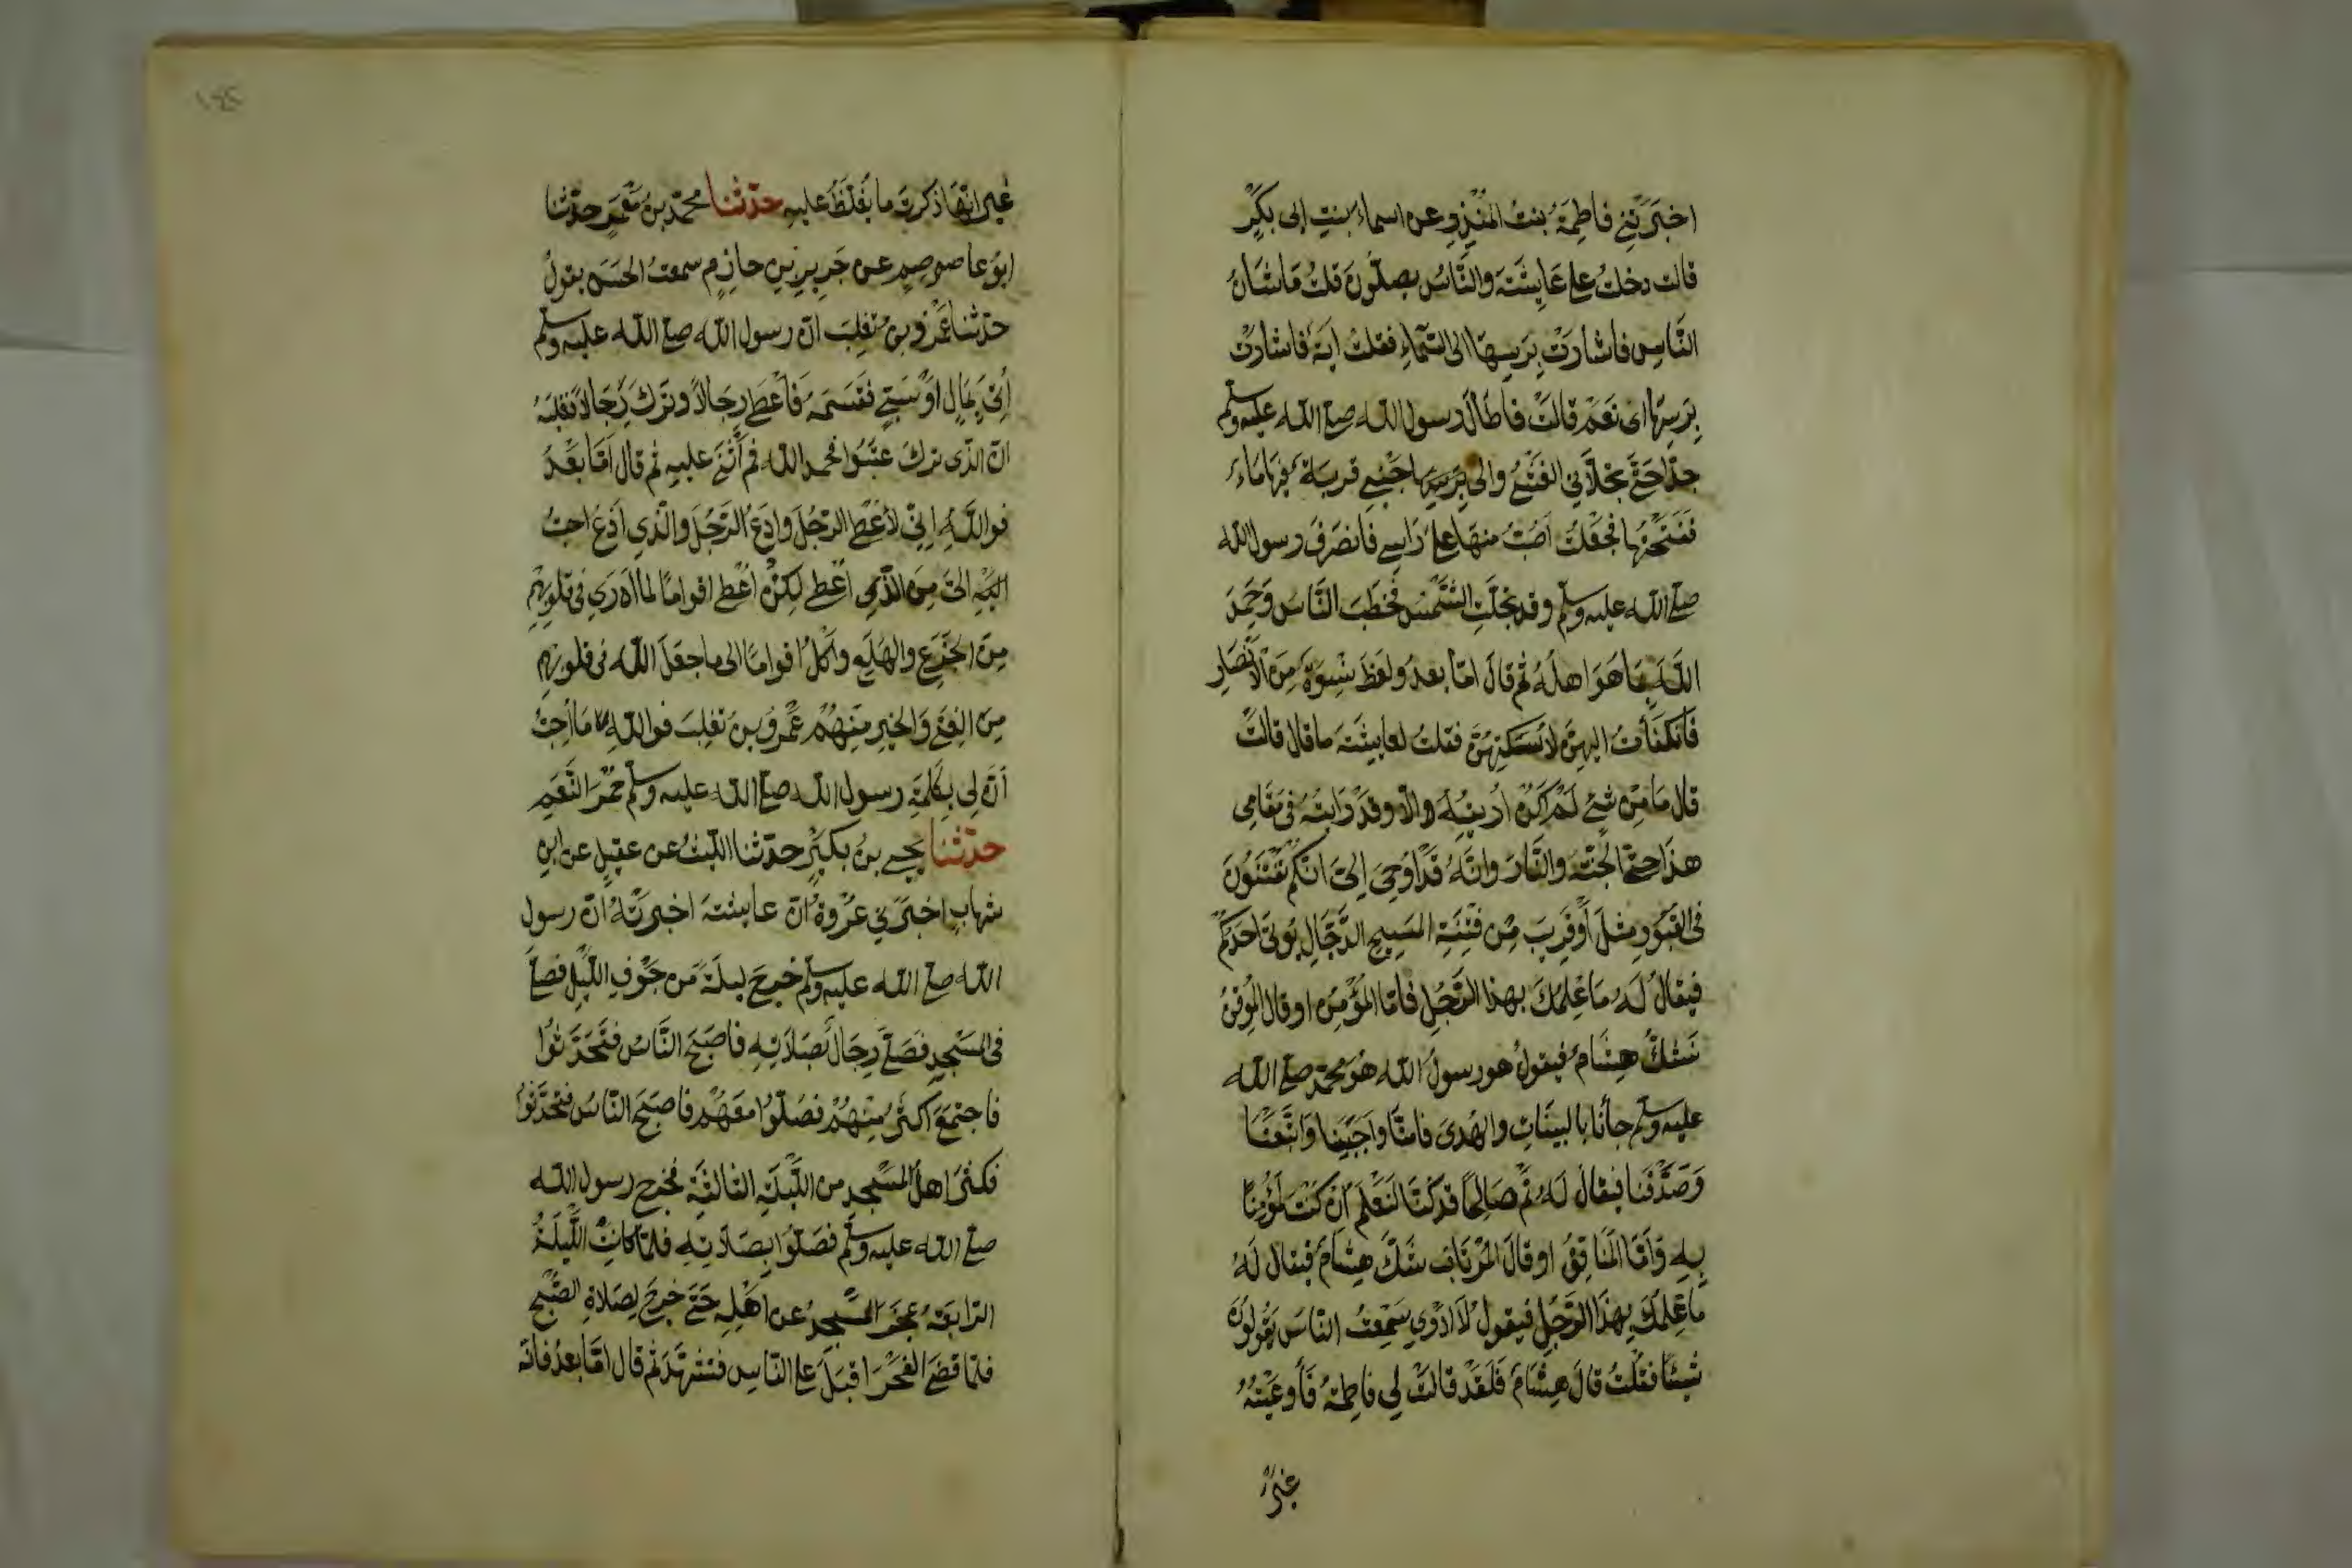 اخبَرَتْنِي فاطِمَةُ بنتُ المُنْذِرِ عن اسماءَ بنتِ ابى بكرٍ
قالت دخلتُ على عَايشَةَ والنَّاسُ يصلّونَ قلتُ مَا شَانُ
النَّاسِ فاشارَتْ بِرَسِهَا الى السّمآءِ فقلتُ ايَة فاشارَتْ
بِرَسِهَا اى نَعَمْ قالَتْ فاطَالَ رسول الله صلى الله عليه وسلم
جدّا حَتّى تجَلّاَنِي الغَشْىُ والى جَنْبِى قربَة فيهَا مَاءٌ
ففَتَحْتُهَا فجَعَلْتُ اصُبُّ منهَا على رَاسِى فانصَرَفَ رسول الله
صلى الله عليه وسلم وقد تجَلّتِ الشَّمْسُ فخَطَبَ النَّاسَ وَحَمِدَ
اللّهَ بِمَا هُوَ اهلُهُ ثم قالَ امّا بعدُ ولغَطَ نِسْوَةٌ مِنَ الاَنْصَارِ
فَانكَفَأتُ اليهِنَّ لاُسَكِتَهُنَّ فقلتُ لعايشَةَ ما قال قالَتْ
قال مَا مِنْ شىْءٍ لَمْ اَكُنْ اُرِيتُهُ الّا وقَدْ رَايتُهُ فى مَقَامِى
هذَا حتّى الجَنّةَ والنَّارَ وانَّهُ قَدْ اُوحِىَ اِلىَّ انّكُمْ تُفْتَنُونَ
فى القبُورِ مِثلَ اَوْ قَرِيبَ مِنْ فِتْنَةِ المَسِيحِ الدَّجّالِ يُوتَى احَدُكُمْ
فيقَالُ لَهُ مَا عِلمُكَ بهذا الرّجُلِ فامّا المُؤْمِنُ او قال المُوقِنُ
شَكَّ هِشَامٌ فيقولُ هو رسولُ الله هُوَ محمّد صلى الله
عليه وسلم جاْنَا بالبَيّنَاتِ والهُدَى فامنّا واَجَبْنَا وَاتّبَعْنَا
وَصَدَّقْنَا فيقالُ لَهُ نَمْ صَالِحًا قد كنّا لَنَعْلَمُ اِنْ كنتَ لَمُؤْمِنًا
بِهِ وَاَمّا المُنَافِقُ او قَالَ المُرْتَابُ شَكَّ هِشَامٌ فيقال لَهُ
مَا عِلمُكَ بِهذَا الرّجُلِ فيقول لاَ ادْرِي سَمِعتُ النّاسَ يَقُولُونَ
شَيْئًا فقُلْتُ قالَ هِشَامٌ فَلَقَدْ قالَتْ لِي فاطِمَةُ فَأَوْعَيْتُهُ
غَيْرَ
١٨٥
غَيْرَ انّهَا ذكرتْ ما يُغَلّظُ عليهِ حدّثنا محمّد بنُ مَعْمَرٍ حدّثنا
ابُو عاصم عن جَرِيرِ بنِ حازِمٍ سمعتُ الحَسَنَ يقولُ
حدّثنا عَمْرُو بنُ تَغلِبَ انّ رسول الله صلى الله عليه وسلم
أُتِىَ بِمَالٍ اَوْ سَبْىٍ فقَسَمَهُ فَأعْطَى رِجَالاً وتَرَكَ رِجَالاً فبلغَهُ
انّ الذى تركَ عتَبُوا فحمد الله ثم أَثْنَى عليهِ ثم قال اَمّا بَعْدُ
فواللّهِ اِنّى لاُعْطِى الرّجُلَ وادَعُ الرّجُلَ والّذِي اَدَعُ احبُّ
الىَّ مِنَ الّذى اُعْطِى لكِنْ اُعْطِى اقوامًا لما اَرَى فى قلُوبِهِمْ
مِنَ الجَزَعِ والهَلَعِ واَكِلُ اقوامًا الى ما جعَلَ اللّه فى قلوبِهِمْ
مِنَ الغِنَى وَالخَيرِ مِنْهُمْ عَمْرُو بنُ تَغلِبَ فواللّهِ مَا اُحِبُّ
اَنّ لِى بِكَلِمَةِ رسول الله صلى الله عليه وسلم حُمْرَ النَّعَمِ
حدّثنا يحيى بنُ بُكَيْرٍ حدّثنا اللّيثُ عن عقيلٍ عن ابنِ
شهابٍ اخبَرَنِي عُرْوَةُ انّ عايشةَ اخبرَتْهُ انّ رسول
الله صلى الله عليه وسلم خرجَ ليلَةً مِن جَوْفِ اللّيلِ فصَلّى
فى المَسْجِدِ فصَلّى رِجَالٌ بصَلاَتِهِ فاصبَحَ النَّاسُ فتَحَدّثُوا
فاجتمعَ اَكثَرُ مِنْهُمْ فصَلّوُا معَهُمْ فاصبَحَ النّاسُ فتحَدّثُوا
فكثُرَ اهلُ المَسْجدِ من اللّيلَةِ الثالثَةِ فخرج رسول الله
صلى الله عليه وسلم فصَلّوا بِصَلاَتِهِ فلمّا كانَتِ اللّيلَةُ
الرّابعَةُ عجَزَ المَسْجدُ عن اهْلِهِ حَتّى خرجَ لِصَلاَةِ الصّبحِ
فلمّا قضَى الفَجْرَ اقبَلَ على النّاسِ فتشَهّدَ ثم قال امّا بعدُ فانّه